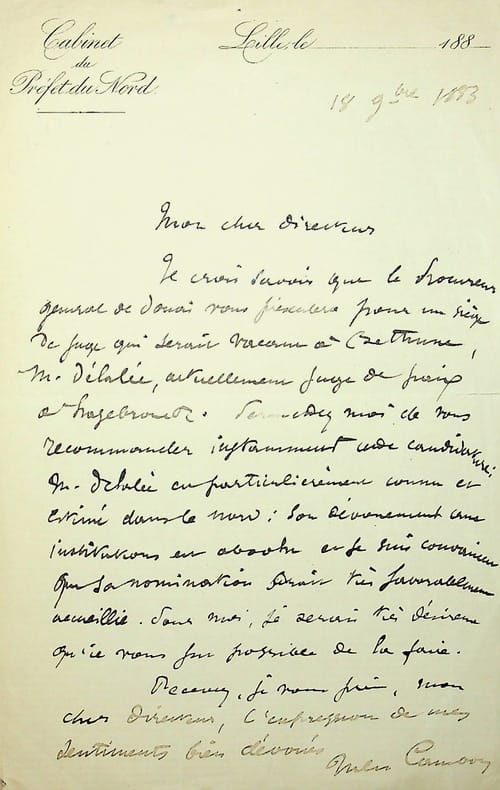 Cabinet
du
Préfet du Nord.
Lille, le 188
18 9bre 1883
Mon cher Directeur
Je crois savoir que le Procureur
général de Douai vous présentera pour un siège
de juge qui serait vacant à Béthune,
M. Délalée, actuellement juge de paix
à Hazebrouck. Permettez moi de vous
recommander instamment cette candidature;
M. Délalée est particulièrement connu et
estimé dans le nord; son dévouement aux
institutions est absolu et je suis convaincu
que sa nomination serait très favorablement
accueillie. Pour moi, je serais très désireux
qu'il vous fut possible de la faire.
Recevez, je vous prie, mon
cher Directeur, l'expression de mes
sentiments bien dévoués
Jules Cambon